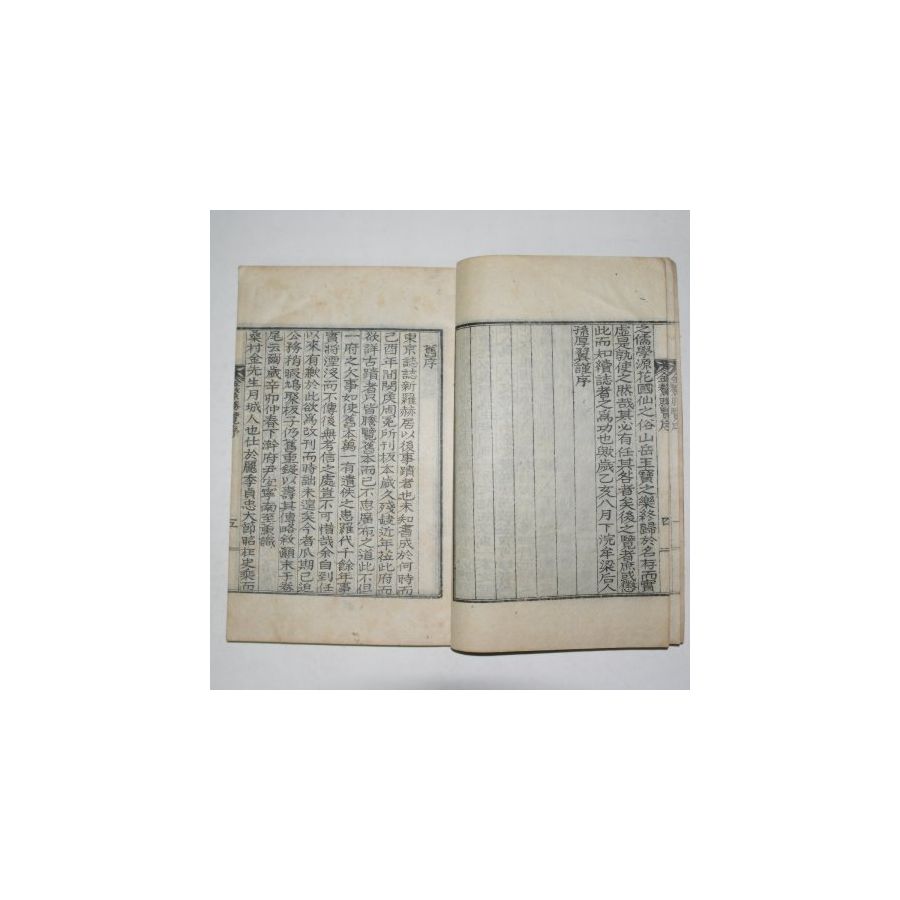 之儒學源花國仙之俗山岳玉寶之樂終歸於名存而實
虛是孰使之然哉其必有任其咎者矣後之覽者庶或懲
此而知續誌者之爲功也歟歲乙亥八月下浣牟梁后人
孫厚翼謹序
金鰲勝覽序
四
舊序
東京誌誌新羅赫居以後事蹟者也未知書成於何時而
己酉年間閔侯周冕所刊板本歲久殘缺近年莅此府而
欲詳古蹟者只皆謄覽舊本而已不思廣布之道此不但
一府之久事如使舊本萬一有遺佚之患羅代千餘年事
實將湮沒而不傳後無考信之處豈不可惜哉余自到任
以來有歉於此欲爲改刊而時詘未遑矣今者瓜期已迫
公務稍暇鳩聚板子仍舊重鋟以壽其傳略敘顚末于卷
尾云爾歲辛卯仲春下澣府尹宜寧南至熏識
桑村金先生月城人也仕於麗季貞忠大節昭在史乘而
金鰲勝覽序
五